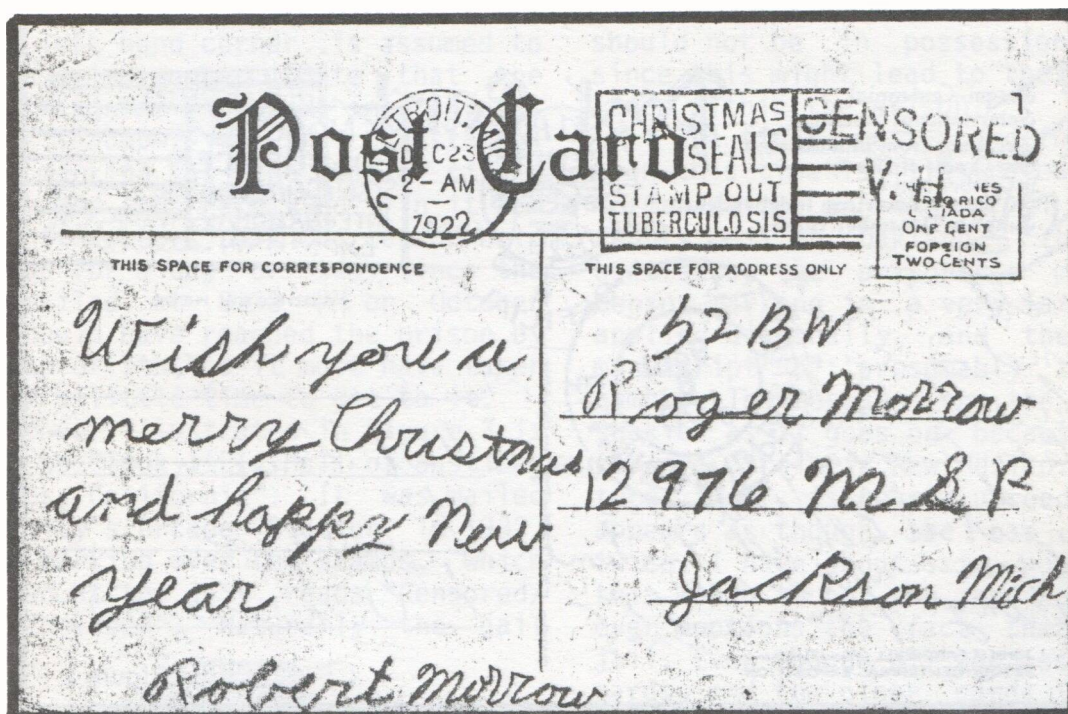 Post Card
DETROIT, MI
DEC 23
2 - AM
1922
CHRISTMAS
SEALS
STAMP OUT
TUBERCULOSIS
CENSORED
V. H.
RICO
ONE CENT
FOREIGN
TWO CENTS
THIS SPACE FOR CORRESPONDENCE
THIS SPACE FOR ADDRESS ONLY
Wish you a
merry Christmas
and happy New
year
Robert Morrow
52 BW
Roger Morrow
12976 M S P
Jackson Mich